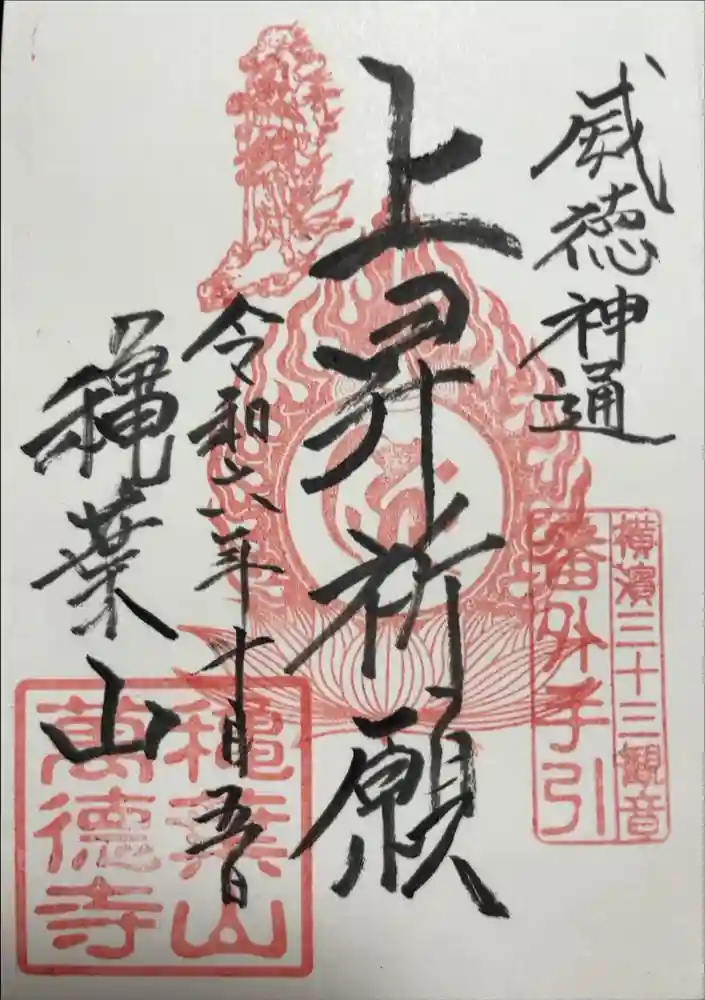 威徳神通
上昇祈願
令和六年十月五日
穐葉山
横濱三十三観音
番外手引
穐葉山
萬徳寺